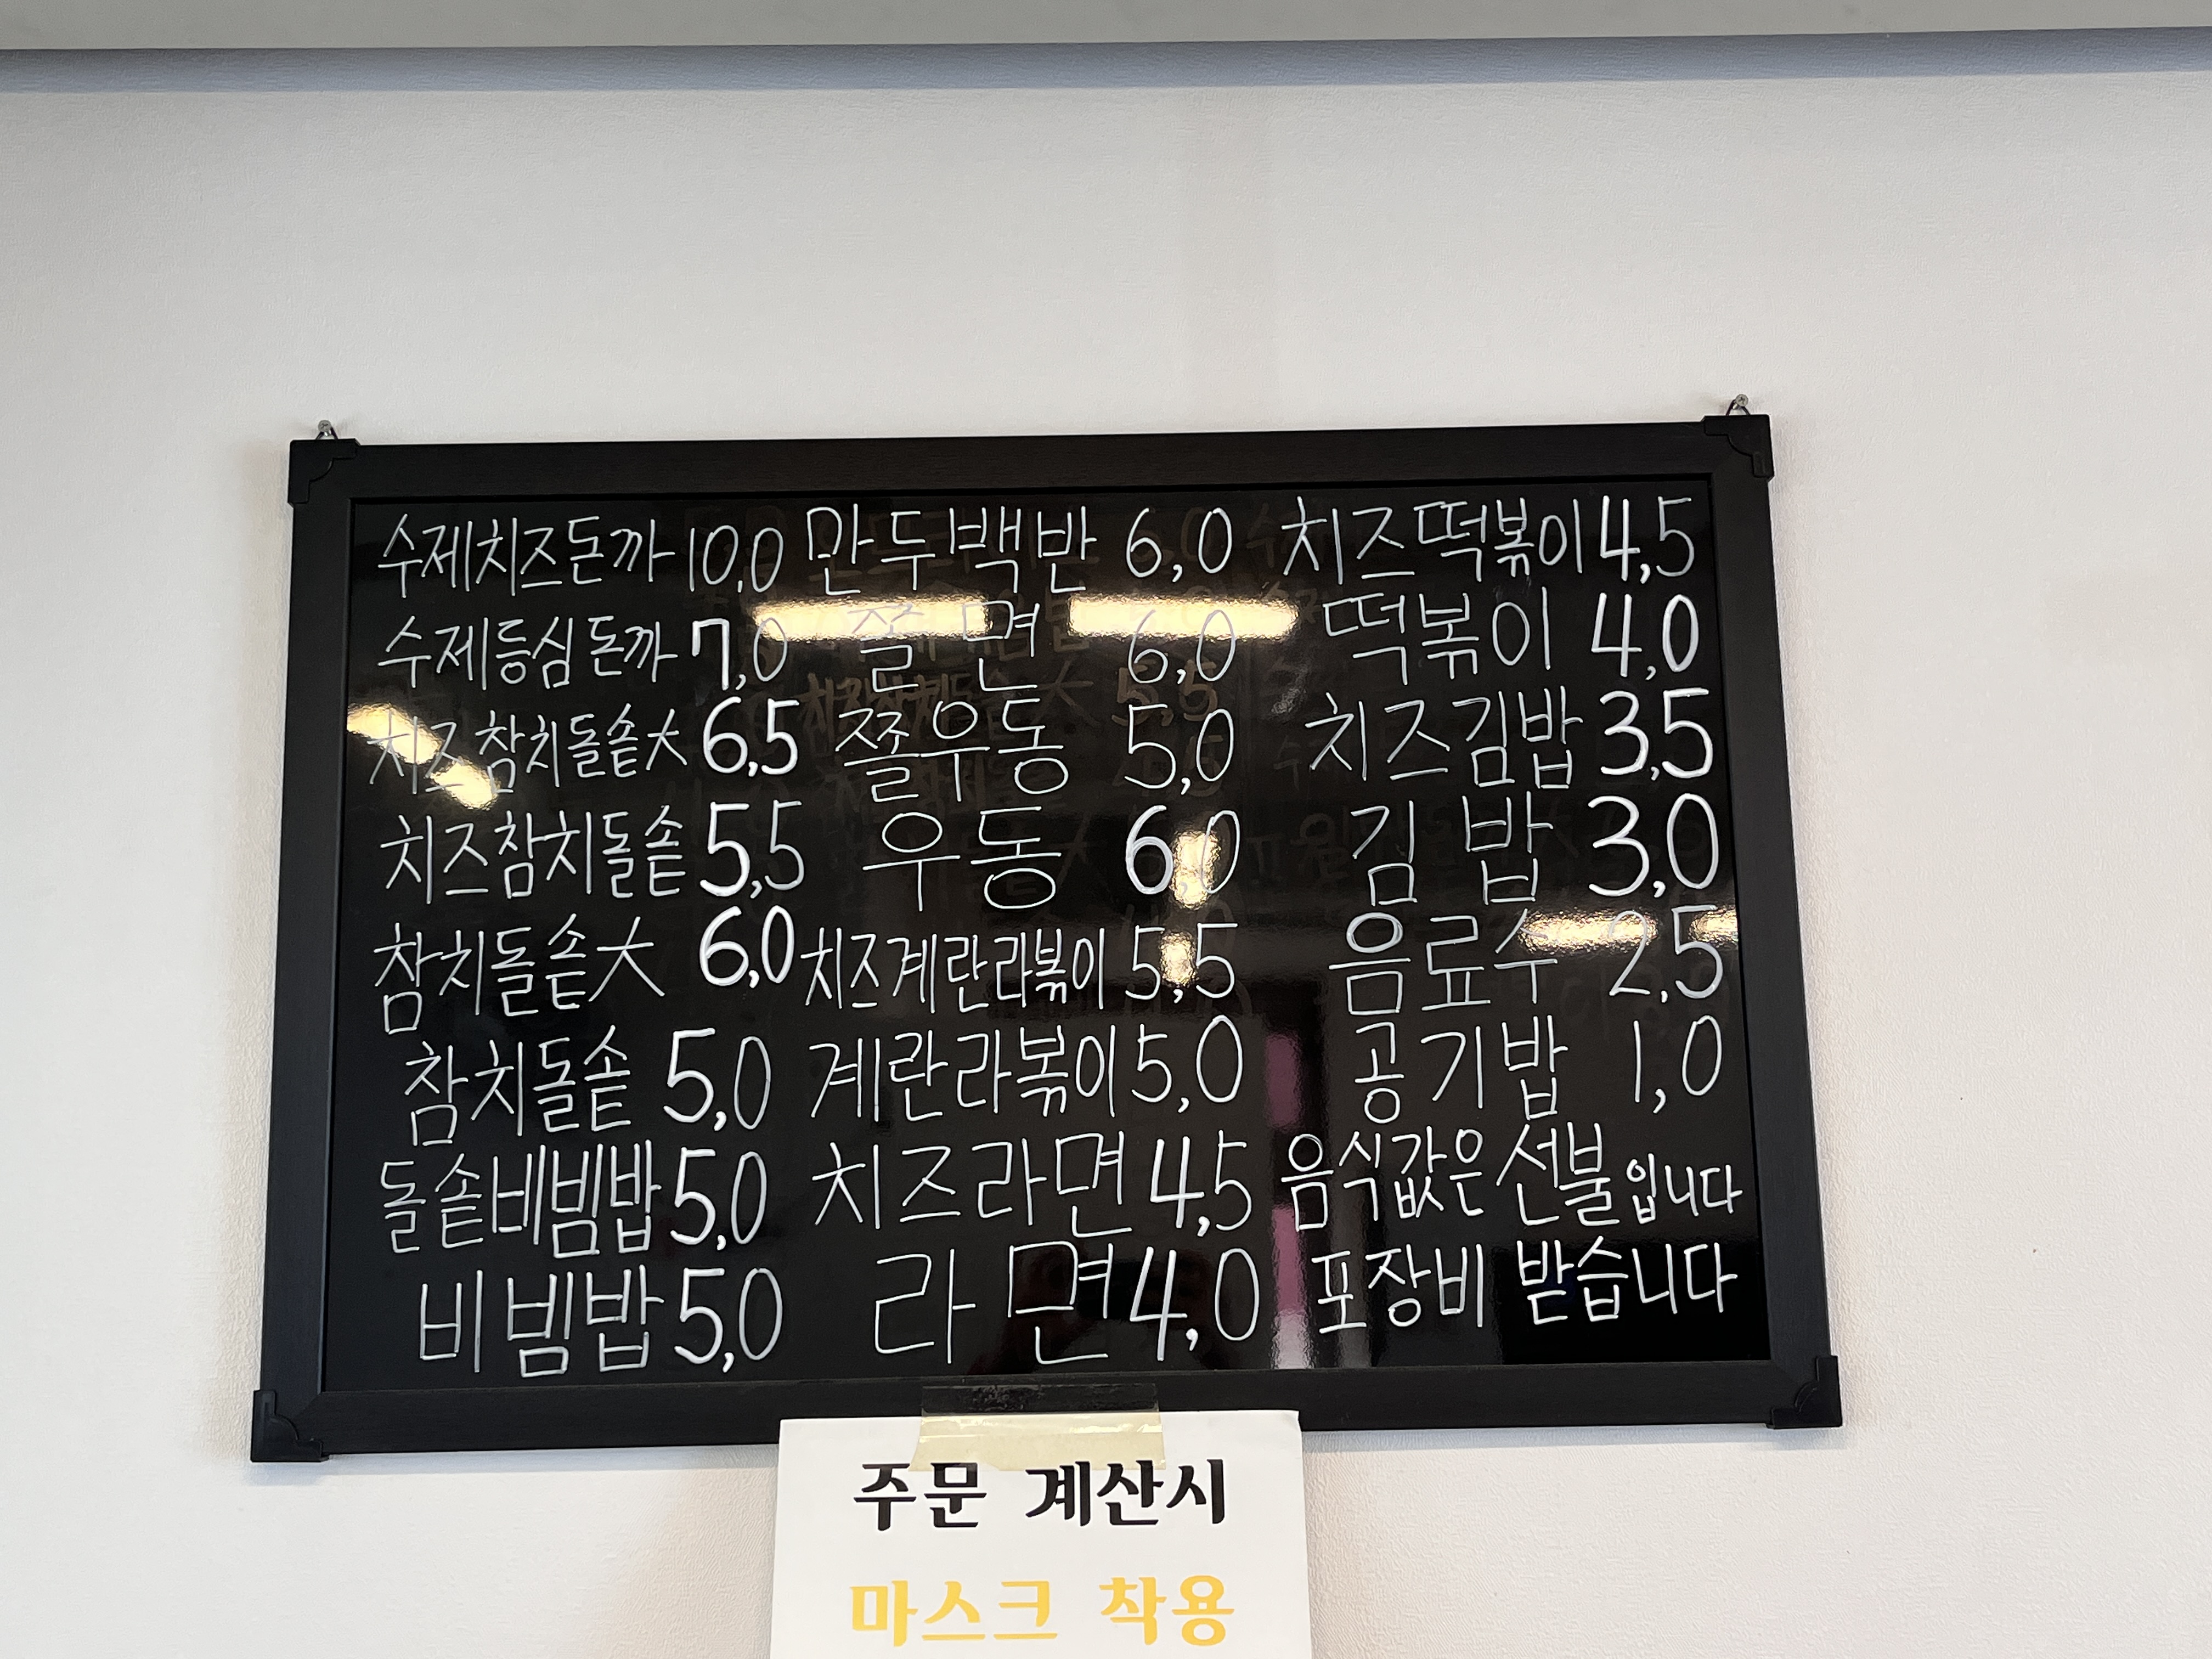 수제치즈돈까 10,0
수제등심돈까 7,0
치즈참치돌솥大 6,5
치즈참치돌솥 5,5
참치돌솥大 6,0
참치돌솥 5,0
돌솥비빔밥 5,0
비빔밥 5,0
만두백반 6,0
쫄면 6,0
쫄우동 5,0
우동 6,0
치즈계란라볶이 5,5
계란라볶이 5,0
치즈라면 4,5
라면 4,0
치즈떡볶이 4,5
떡볶이 4,0
치즈김밥 3,5
김밥 3,0
음료수 2,5
공기밥 1,0
음식값은 선불입니다
포장비 받습니다
주문 계산시
마스크 착용